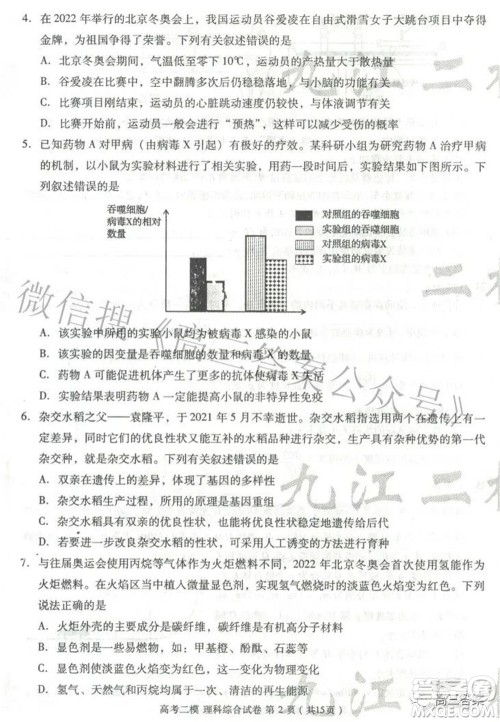 4. 在2022年举行的北京冬奥会上，我国运动员谷爱凌在自由式滑雪女子大跳台项目中夺得
金牌，为祖国争得了荣誉。下列有关叙述错误的是
A．北京冬奥会期间，气温低至零下10℃，运动员的产热量大于散热量
B．谷爱凌在比赛中，空中翻腾多次后仍稳稳落地，与小脑的功能有关
C．比赛项目刚结束时，运动员的心脏跳动仍很剧烈，与体液调节有关
D．比赛开始前，运动员一般要进行“预热”，这样可以减少受伤的概率
5. 已知药物A对甲病（由病毒X引起）有极好的疗效。某科研小组为研究药物A治疗甲病
的机制，以小鼠为实验材料进行了相关实验，用药一段时间后，实验结果如下图所示。下
列叙述错误的是
吞噬细胞/
病毒X的相对
数量
对照组的吞噬细胞
实验组的吞噬细胞
对照组的病毒X
实验组的病毒X
A．该实验中所用的实验小鼠均为被病毒X感染的小鼠
B．该实验的因变量是吞噬细胞的数量和病毒X的数量
C．药物A可能通过直接杀伤病毒X使病毒X失活
D．药物A发挥作用主要依赖于小鼠的非特异性免疫
6. 杂交水稻之父——袁隆平，于2021年5月不幸逝世。杂交水稻指选用两个在遗传上有一
定差异，同时它们的优良性状又能互补的水稻品种进行杂交，生产具有杂种优势的第一代
杂交种，就是杂交水稻。下列有关叙述错误的是
A．双亲在遗传上的差异，体现了遗传的多样性
B．杂交水稻生产过程中，所应用的原理是基因重组
C．杂交水稻具有双亲的优良性状，故优良性状能稳定地遗传给后代
D．若要培养出双亲没有的优良性状，可采用人工诱变的方法
7. 与往届奥运会使用丙烷等气体作为火炬燃料不同，2022年北京冬奥会首次使用氢气作为
火炬燃料。在火焰区当中植入微量显色剂，实现氢气燃烧时的淡蓝色火焰变为红色。下列
说法正确的是
A．火炬外壳的主要成分是碳纤维，碳纤维是有机高分子材料
B．显色剂是一类有机物，如：甲基橙、酚酞、石蕊等
C．显色剂使淡蓝色火焰变为红色，这一变化为物理变化
D．氢气、天然气等火焰均为淡蓝色，它们均属于可再生能源
高考二模 理科综合试卷 第2页（共15页）
微信搜《高三答案公众号》
九江二模
九江二模
高三答案